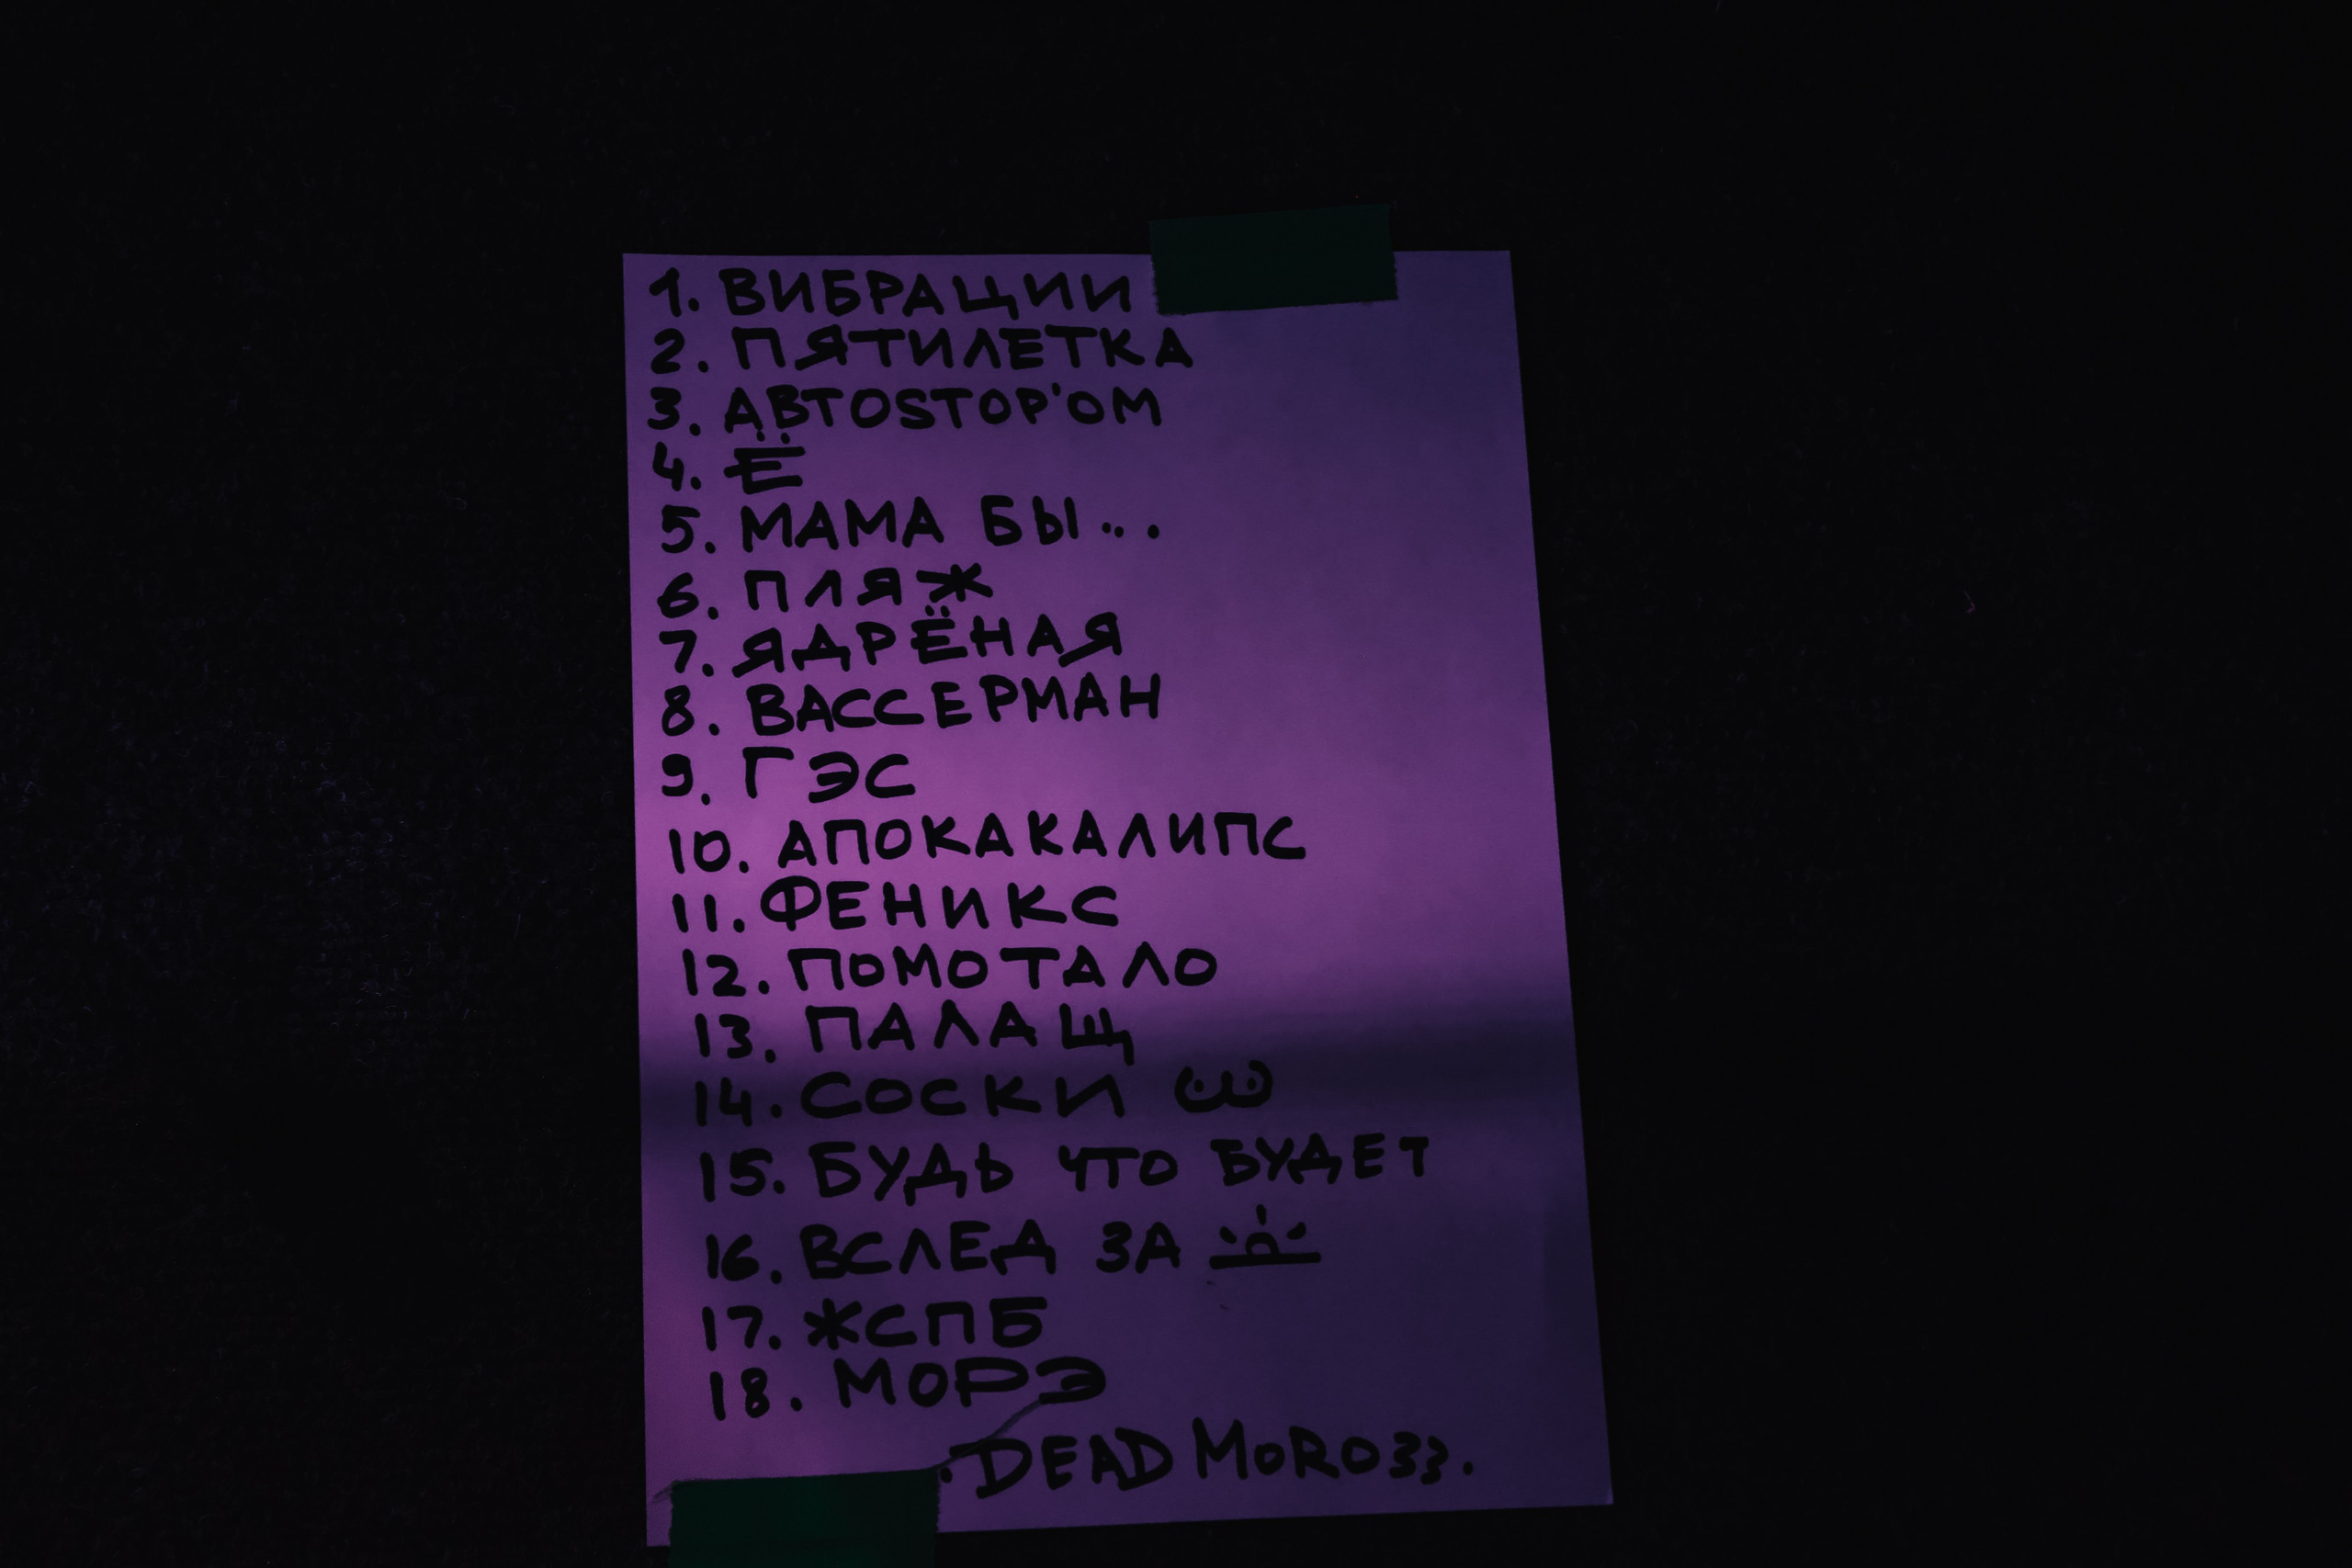 1. ВИБРАЦИИ
2. ПЯТИЛЕТКА
3. АВТОSTOP'ОМ
4. Ё
5. МАМА БЫ...
6. ПЛЯЖ
7. ЯДРЁНАЯ
8. ВАССЕРМАН
9. ГЭС
10. АПОКАКАЛИПС
11. ФЕНИКС
12. ПОМОТАЛО
13. ПАЛАЩ
14. СОСКИ
15. БУДЬ ЧТО БУДЕТ
16. ВСЛЕД ЗА
17. ЖСПБ
18. МОРЭ
.DEAD MORO33.